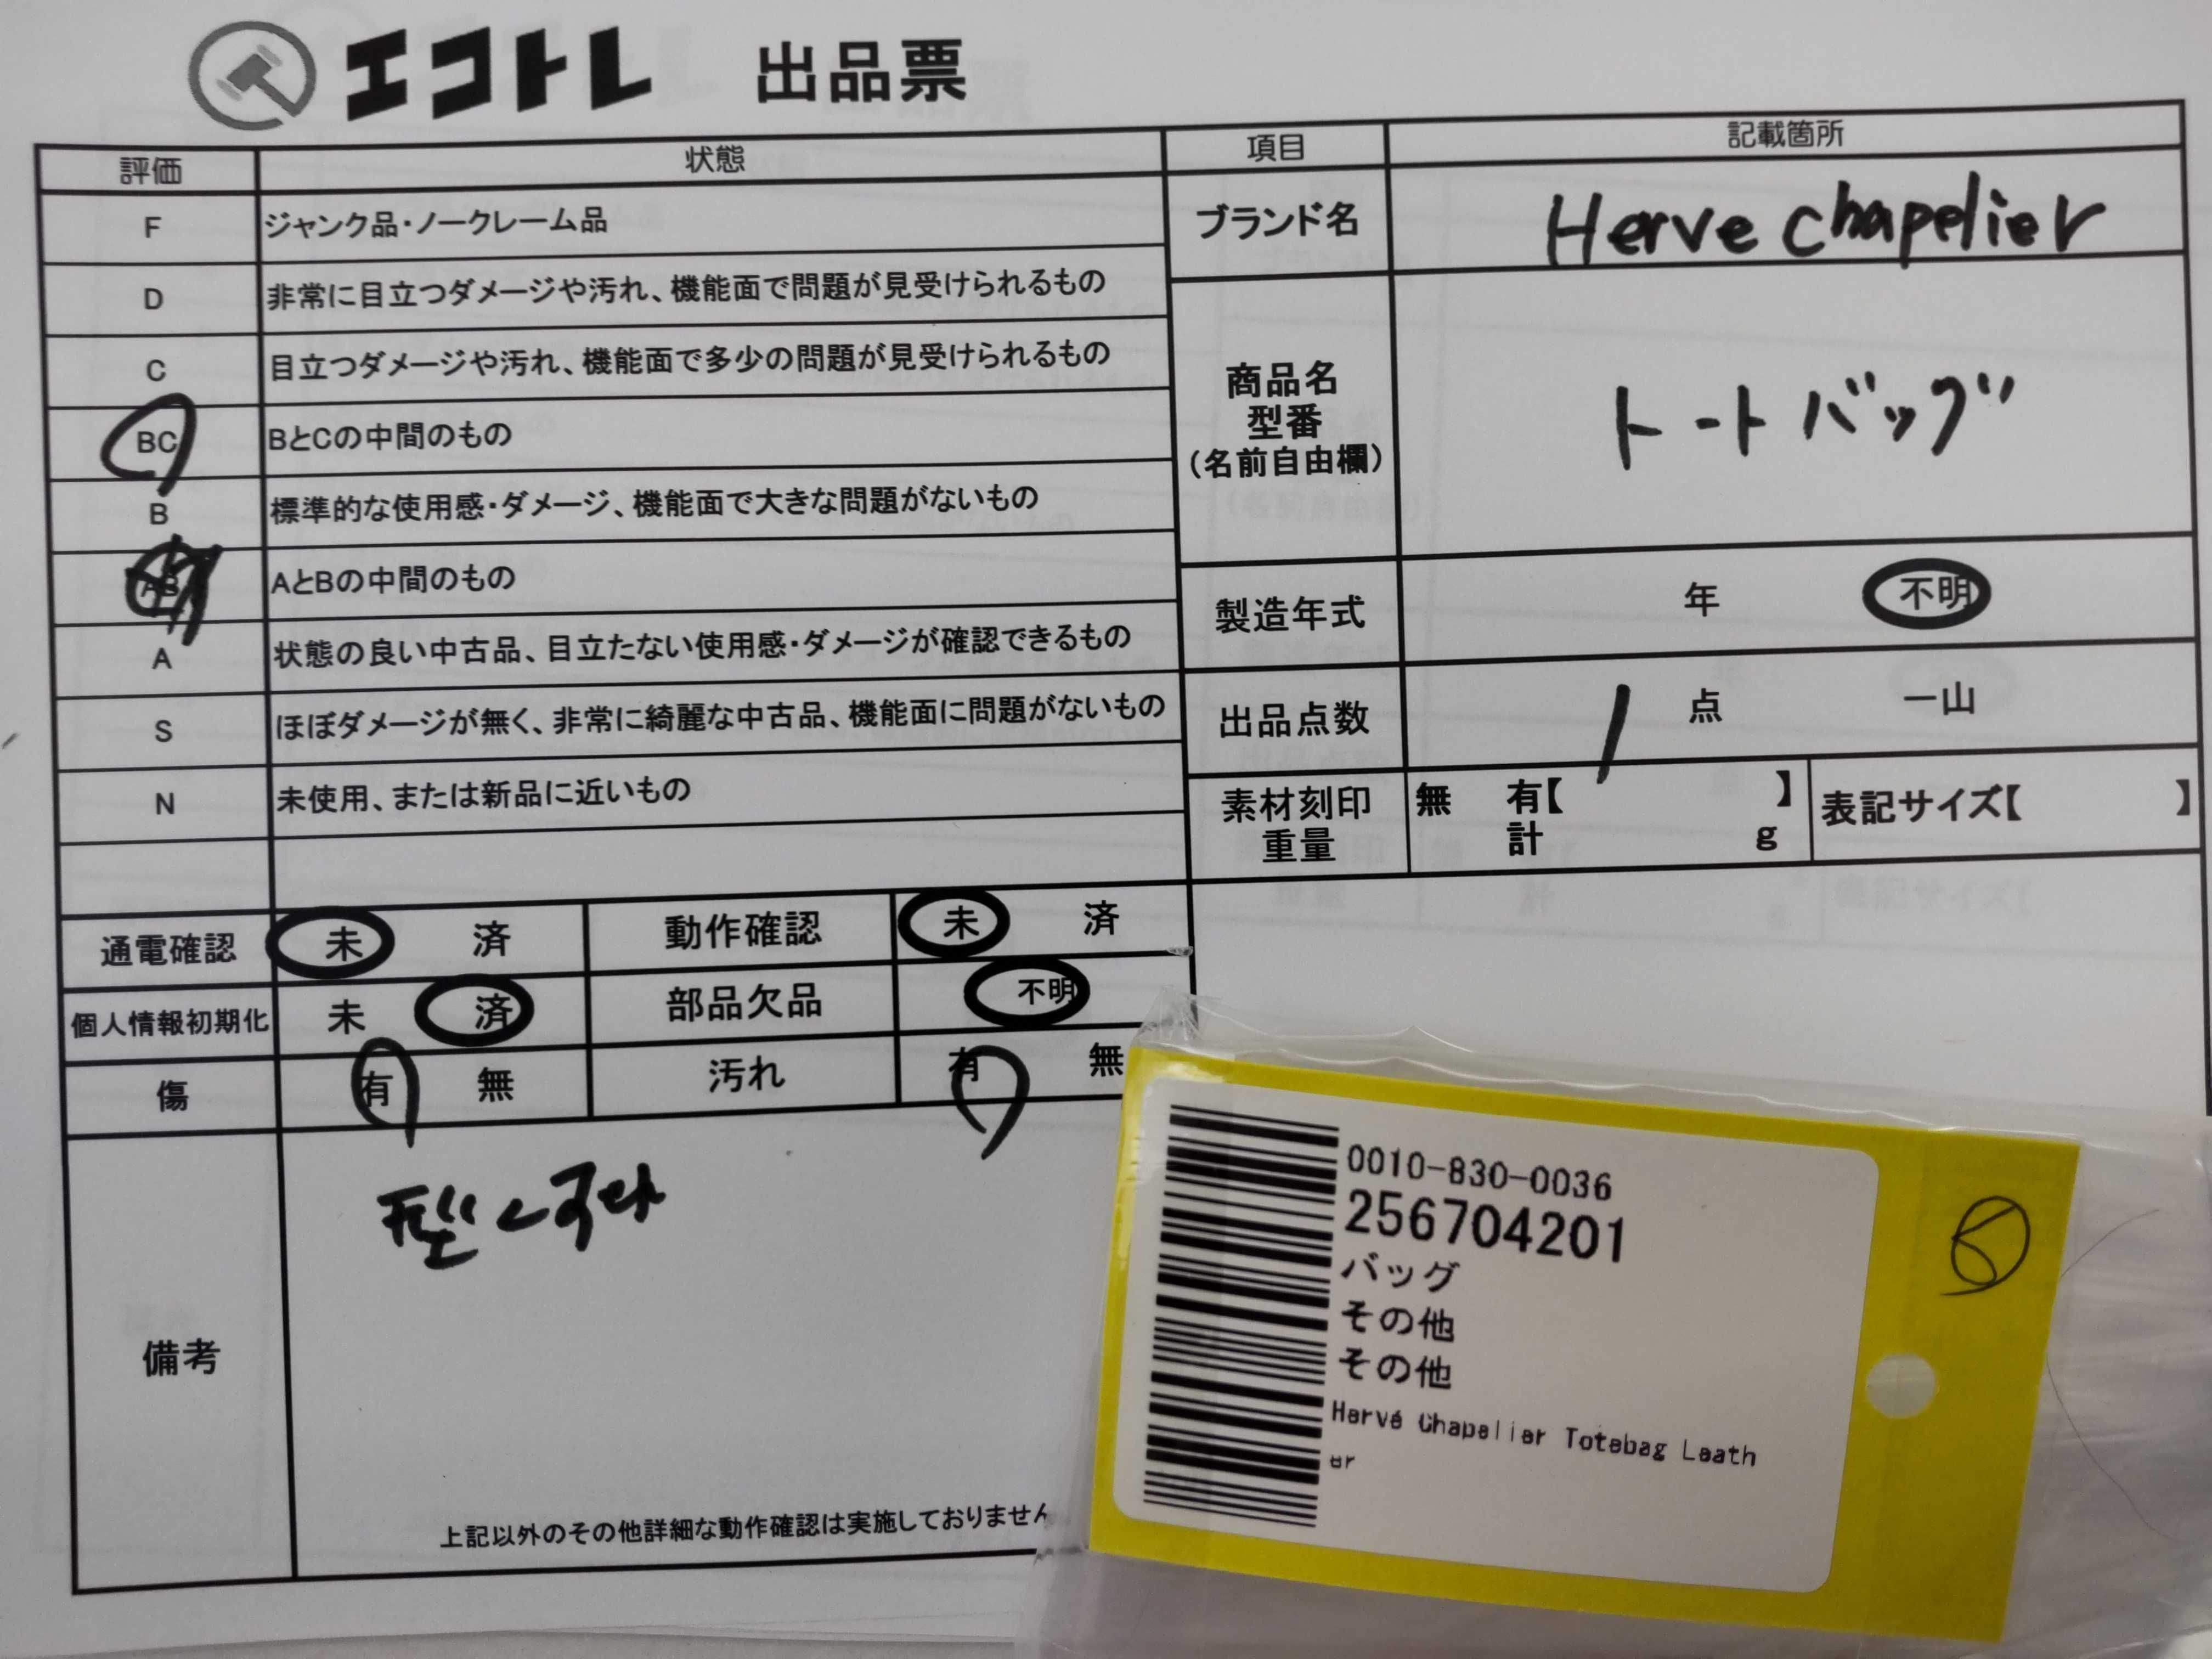 エコトレ 出品票
評価 状態 項目 記載箇所
F ジャンク品・ノークレーム品
D 非常に目立つダメージや汚れ、機能面で問題が見受けられるもの
C 目立つダメージや汚れ、機能面で多少の問題が見受けられるもの
BC BとCの中間のもの
B 標準的な使用感・ダメージ、機能面で大きな問題がないもの
AB AとBの中間のもの
A 状態の良い中古品、目立たない使用感・ダメージが確認できるもの
S ほぼダメージが無く、非常に綺麗な中古品、機能面に問題がないもの
N 未使用、または新品に近いもの
ブランド名 Herve chapelier
商品名
型番
(名前自由欄)
トートバッグ
製造年式 年 不明
出品点数 1 点 一山
素材刻印 無 有【 】 表記サイズ【 】
重量 計 g
通電確認 未 済 動作確認 未 済
個人情報初期化 未 済 部品欠品 不明
傷 有 無 汚れ 有 無
備考
型くずれ
上記以外のその他詳細な動作確認は実施しておりません
0010-830-0036
256704201
バッグ
その他
その他
Hervé Chapelier Totebag Leath
er